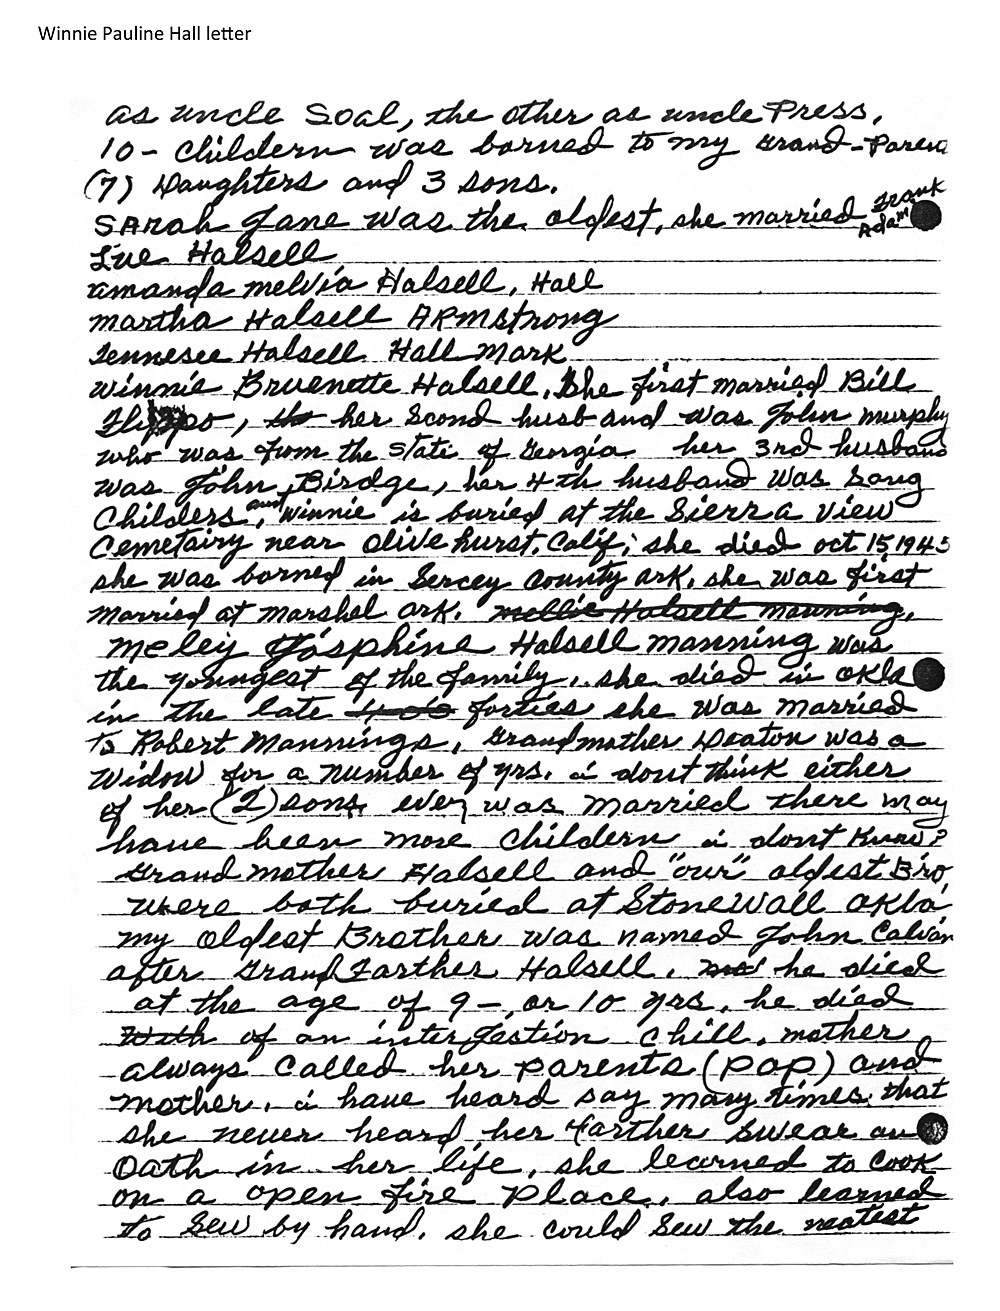 Winnie Pauline Hall letter
as uncle Soal, the other as uncle Press,
10 - Childern was borned to my Grand-Paren
(7) Daughters and 3 sons.
SARah Jane was the oldest, she married Frank Adam
Lue Halsell
amanda melvia Halsell, Hall
martha Halsell ARmstrong
Tennesee Halsell Hall Mark
Winnie Bruenette Halsell. She first married Bill
her Scond husband was John murphy
who was from the State of Georgia her 3rd husband
was John Birdge, her 4th husband was Doug
Childers, and Winnie is buried at the Sierra view
Cemetairy near olive hurst, Calif; she died oct 15, 1945
she was borned in Sercey County ark. she was first
married at marshel ark. mellie Halsell manning,
meley Josphine Halsell manning was
the youngest of the family, she died in okla
in the late forties she was married
To Robert Mannings, Grandmother Deaton was a
Widow for a number of yrs. i dont think either
of her (2) sons, ever was married there may
have been more childern i dont Know?
Grand mother Halsell and "our" oldest Bro,
were both buried at StoneWall okla,
my oldest Brother was named John Calvan
after Grand Farther Halsell. he died
at the age of 9 - or 10 yrs, he died
With of an intergestion chill, mother
always called her parents (pop) and
mother. i have heard say many times that
she never heard her farther swear an
Oath in her life, she learned to cook
on a open fire place, also learned
to Sew by hand, she could Sew the neatest